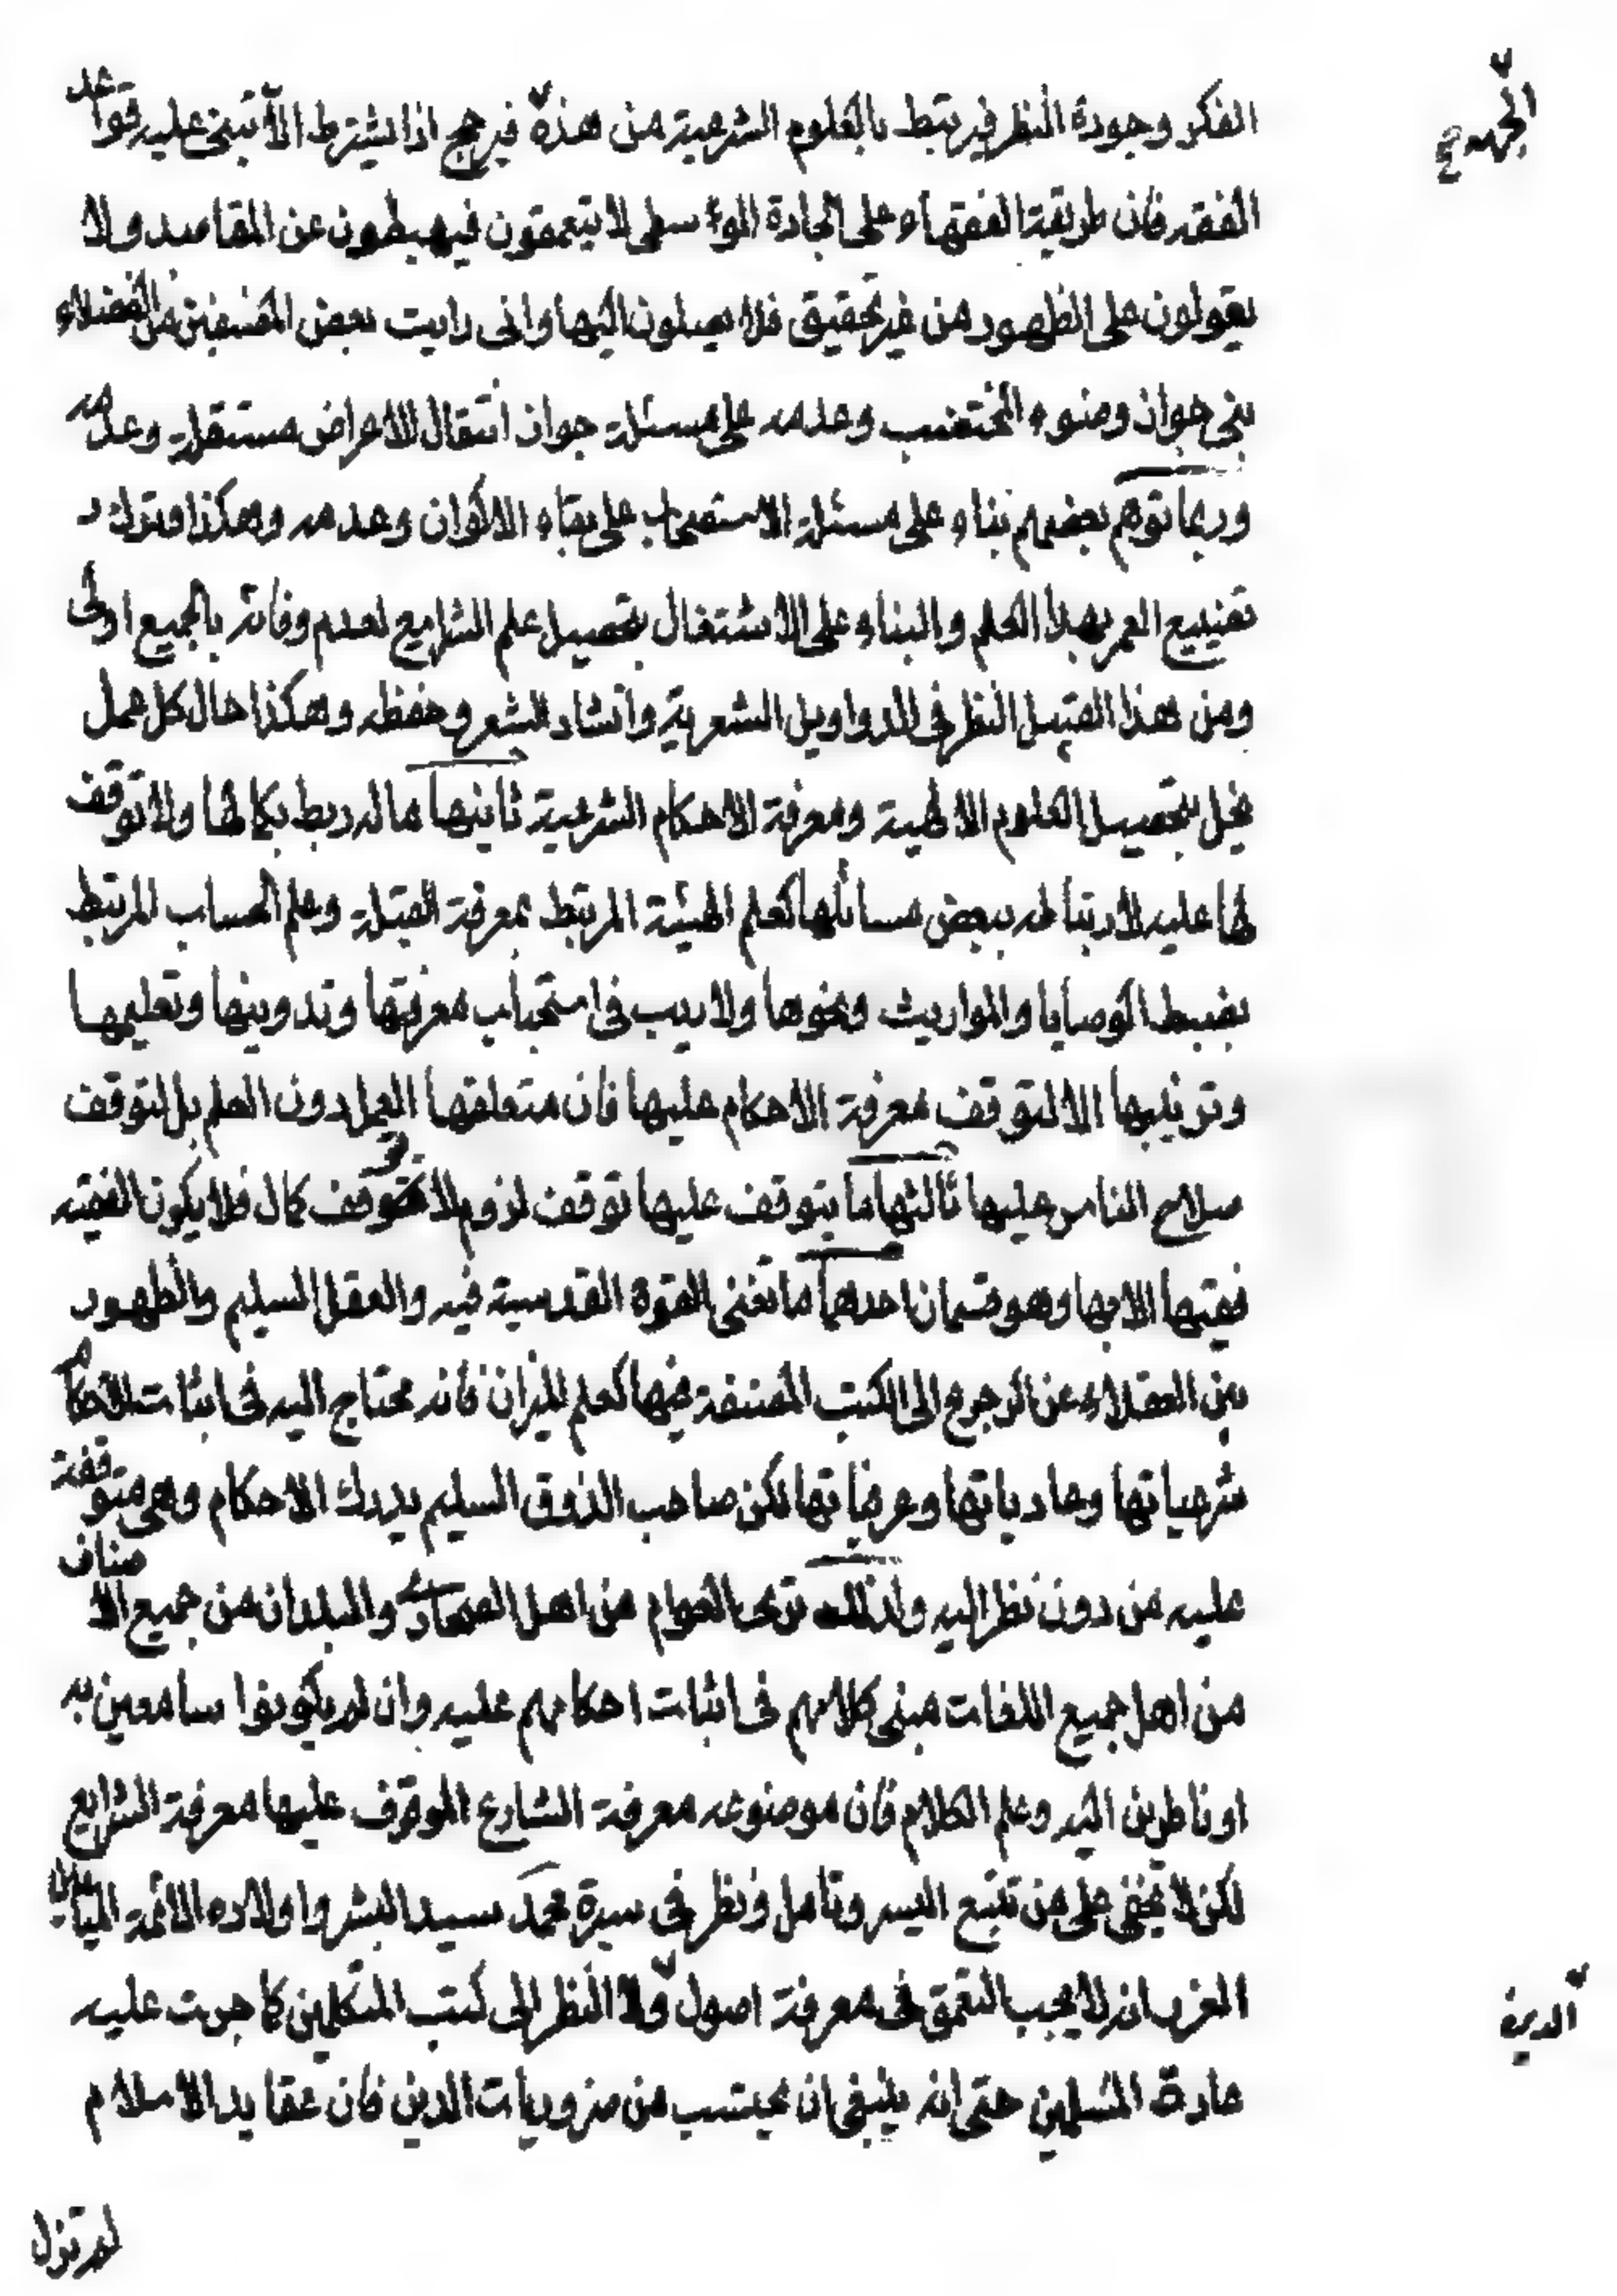 الفكر وجودة النظر فيرتبط بالعلوم الشرعية من هذه فيرجح اذا يشترط الا تبنى عليه قواعد
الجهة صح
الفقه فان طريقة الفقهاء على الجادة الوسطى لا يتعمقون فيهبطون عن المقاصد ولا
يعولون على الظهور من غير تحقيق فلا يصلون اليها وانى رايت بعض المصنفين من الفضلاء
بنى جواز وضوء المختضب وعدمه على مسئلة جواز انتقال الاعراض مستقلة وعدمه
وربما توهم بعضهم بناء على مسئلة الاستصحاب على بقاء الاكوان وعدمه وهكذا وترك
تضييع العمر بهذا العلم والبناء على الاشتغال بتحصيل علم الشرايع لعدم وفائه بالجميع اولى
ومن هذا القبيل النظر فى الدواوين الشعرية وانشاد الشعر وحفظه وهكذا حال كل عمل
يخل بتحصيل العلوم الالهية ومعرفة الاحكام الشرعية ثانيها ما له ربط بكمالها ولا توقف
لها عليه لارتباطه ببعض مسائلها كعلم الهيئة المرتبط بمعرفة القبلة وعلم الحساب المرتبط
بضبط الوصايا والمواريث ونحوها ولا ريب فى استحباب معرفتها وتدوينها وتعليمها
وترتيبها لا لتوقف معرفة الاحكام عليها فان متعلقها العمل دون العلم بل لتوقف
صلاح الناس عليها ثالثها ما يتوقف عليها توقف لزوم لا توقف كمال فلا يكون الفقيه
فقيها الا بها وهو قسمان احدهما ما تغنى القوة القدسية فيه والعقل السليم والظهور
بين العقلاء عن الرجوع الى الكتب المصنفة فيها كعلم الميزان فانه محتاج اليه فى اثبات الاحكام
شرعياتها وعادياتها وعرفياتها لكن صاحب الذوق السليم يدرك الاحكام وهى متوقفة
عليه من دون نظر اليه ولذلك ترى العوام من اهل الصحارى والبلدان من جميع الاصناف
من اهل جميع اللغات مبنى كلامهم فى اثبات احكامهم عليه وان لم يكونوا سامعين به
او ناظرين اليه وعلم الكلام فان موضوعه معرفة الشارع الموقوف عليها معرفة الشرايع
لكن لا يخفى على من تتبع السير وتامل ونظر فى سيرة محمد سيد البشر واولاده الائمة الميامين
الغرر انه لا يجب التعمق فى معرفة اصول ولا النظر الى كتب المتكلمين كما جرت عليه
الدين
عادة المسلمين حتى انه ينبغى ان يحتسب من ضروريات الدين فان عقايد الاسلام
لم تزل